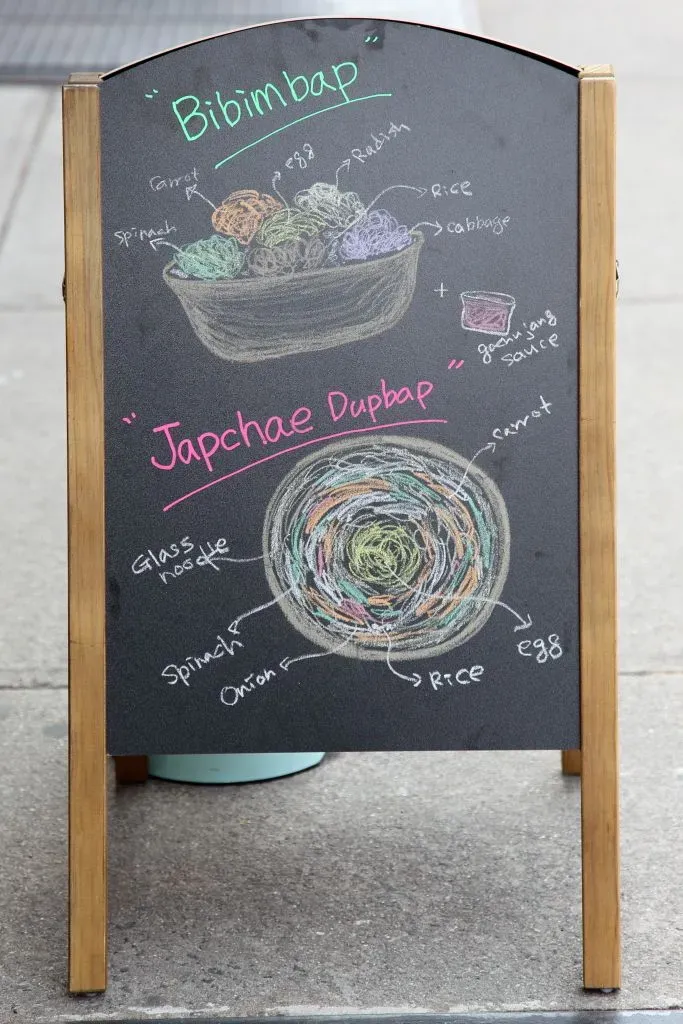 "Bibimbap"
egg
Radish
Carrot
Rice
Spinach
cabbage
+
gochujang
sauce
"Japchae Dupbap"
carrot
Glass
noodle
Spinach
Onion
Rice
egg